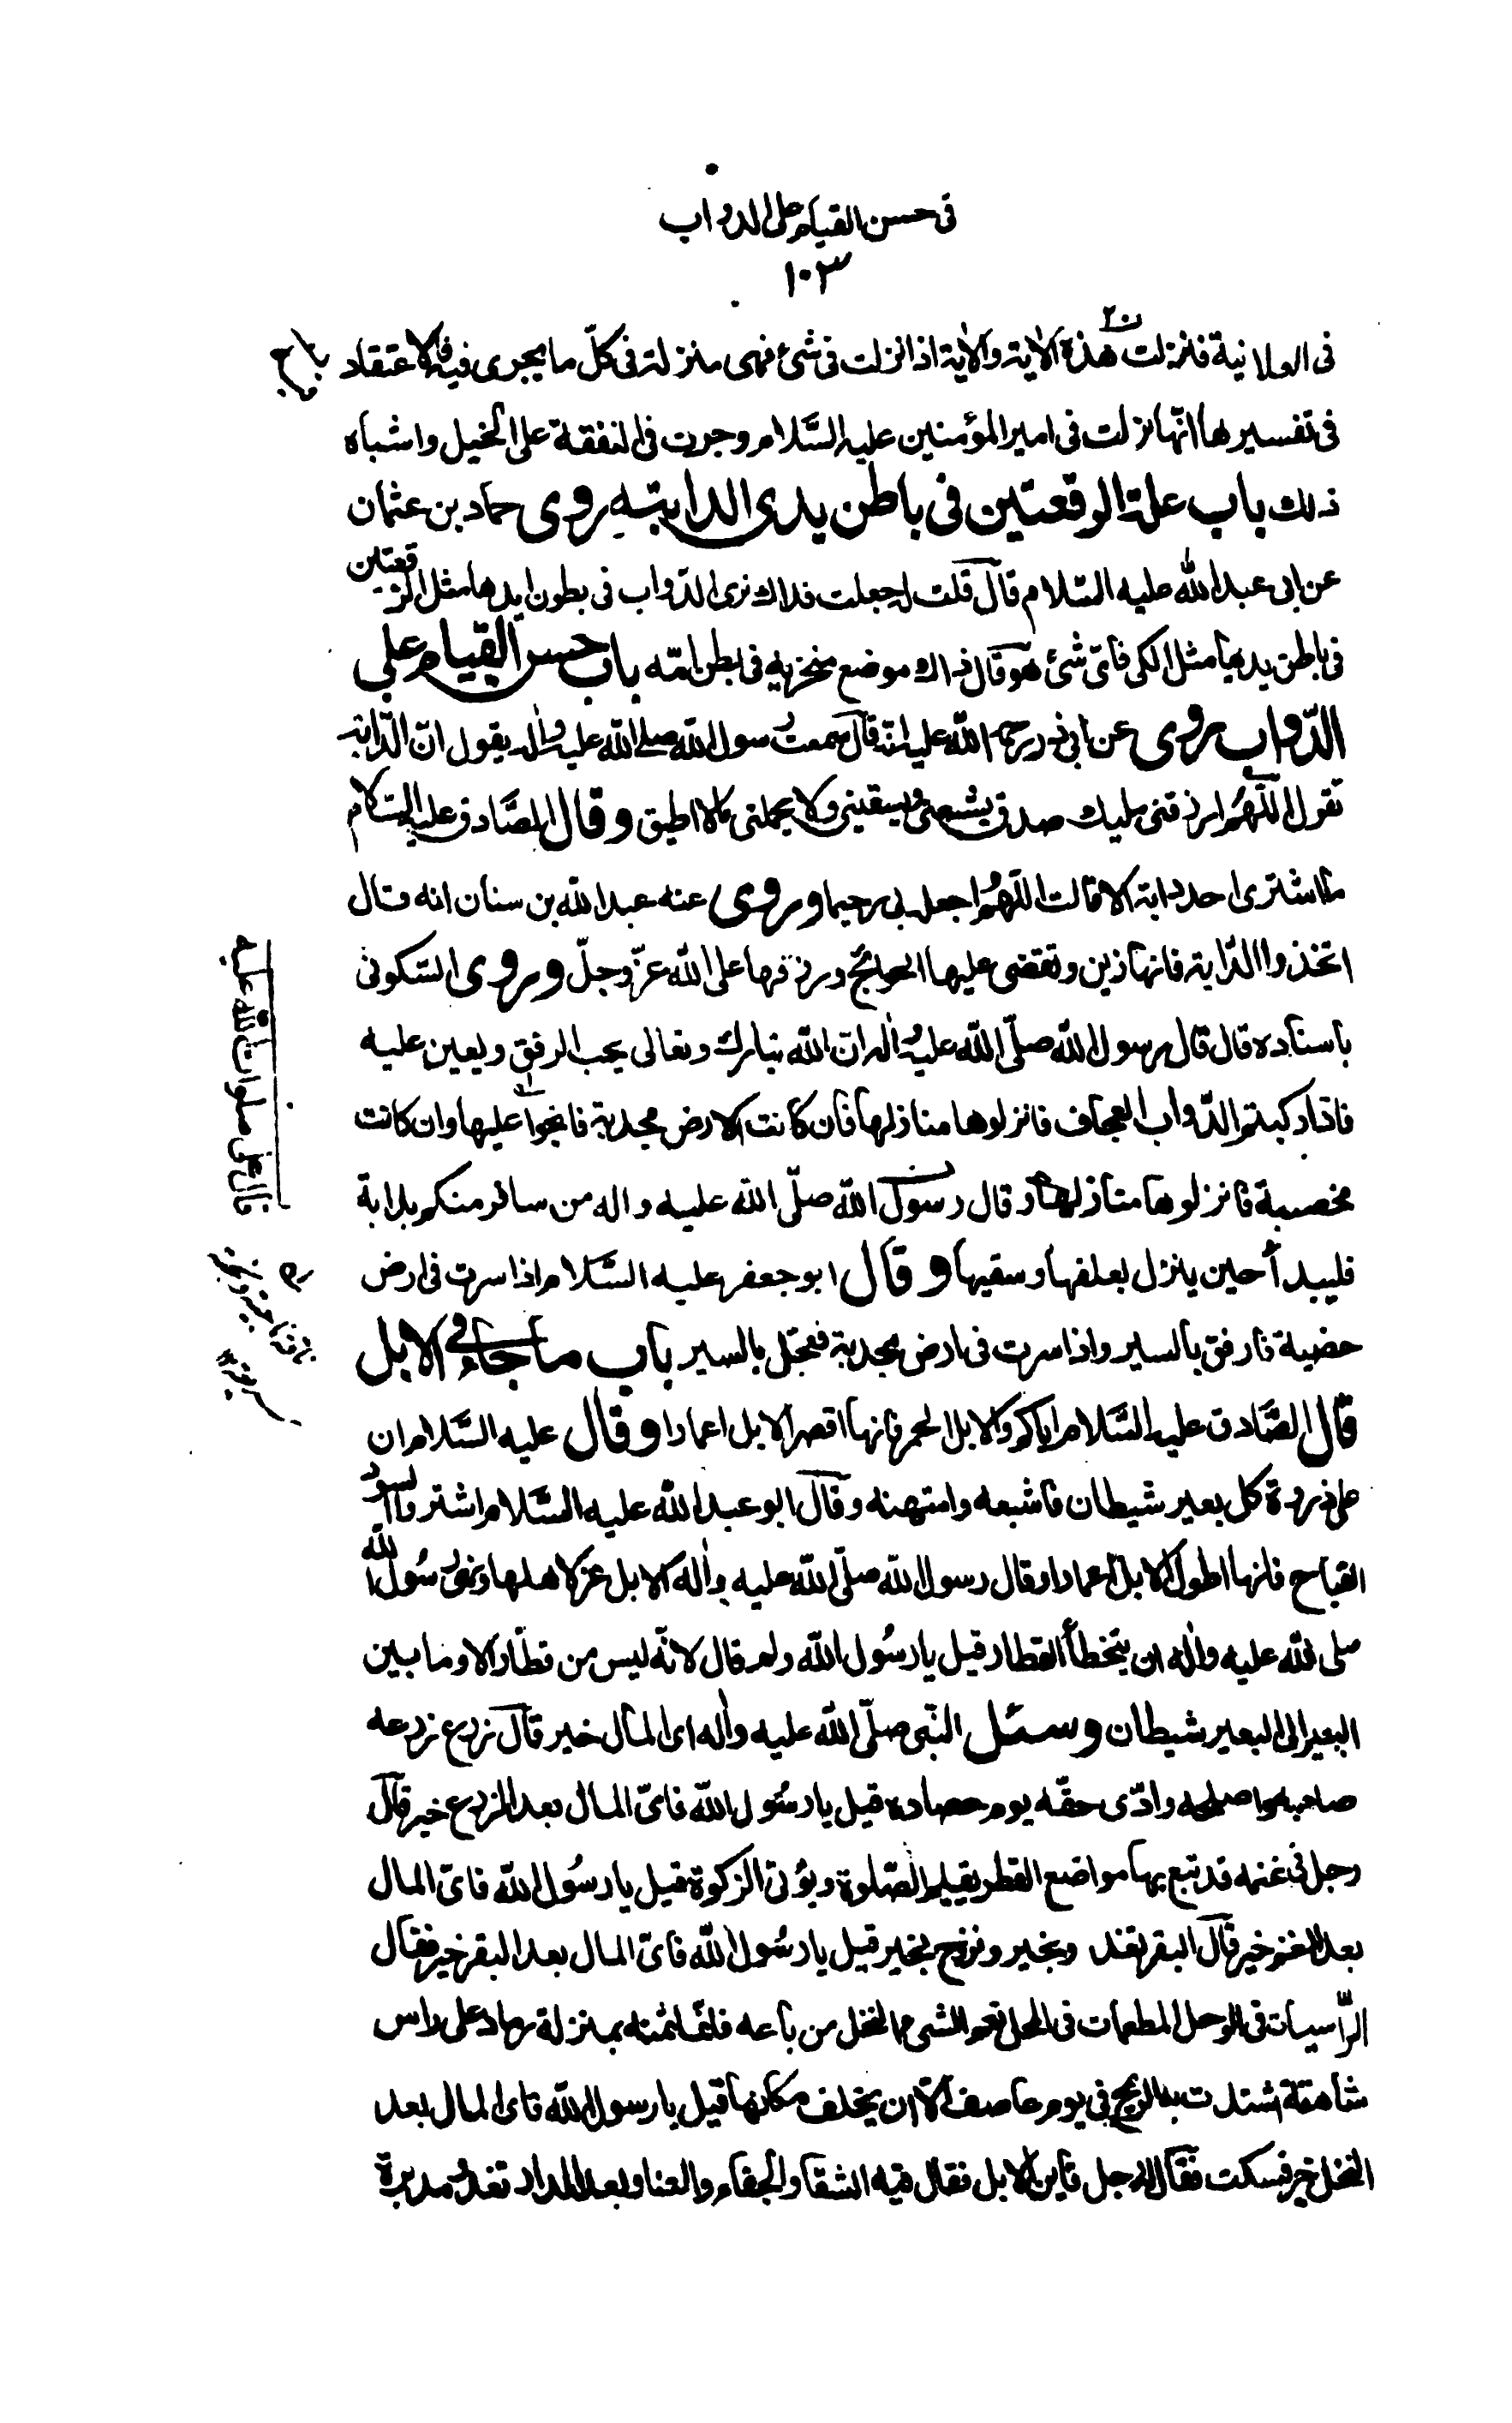 فى حسن القيام على الدواب
١٠٣
فى العلانية فنزلت هذه الاية والاية اذا نزلت فى شئ فهى منزلة فى كلّ ما يجرى فيه فالاعتقاد
فى تفسيرها انّها نزلت فى امير المؤمنين عليه السَّلام وجرت فى النفقة على الخيل واشباه
ذلك باب علة الرقعتين فى باطن يدى الدابته روى حماد بن عثمان
عن ابى عبد الله عليه السّلام قال قلت له جعلت فداك نرى الدّواب فى بطون ايديها مثل الرقعتين
فى باطن يديها مثل الكى فاىّ شئ هو قال ذاك موضع منخريه فى بطن امّه باب حسن القيام على
الدّواب روى عن ابى ذر رحمة الله عليه انه قال سمعت رسول الله صلى الله عليه واله يقول ان الدّابة
تقول اللّهمُ ارزقنى مليك صدق يشبعنى ويسقينى ولا يحملنى مالا اطيق وقال الصَّادق عليه السّلام
ما اشترى احد دابة الا قالت اللّهمُ اجعله بى رحيما وروى عنه عبد الله بن سنان انه قال
اتخذوا الدّابة فانها زين وتقضى عليها الحوائج ورزقها على الله عزّ وجلّ وروى السّكونى
باسناده قال قال رسول الله صلّى الله عليه واله ان الله تبارك وتعالى يحب الرفق ويعين عليه
فاذا ركبتم الدّواب العجاف فانزلوها منازلها فان كانت الارض مجدبة فانجوا عليها وان كانت
مخصبة فانزلوها منازلها وقال رسول الله صلّى الله عليه واله من سافر منكم بدابة
فليبدأ حين ينزل بعلفها وسقيها وقال ابو جعفر عليه السَّلام اذا سرت فى ارض
خصبة فارفق بالسير واذا سرت فى ارض مجدبة فعجّل بالسير باب ما جاء فى الابل
قال الصَّادق عليه السَّلام اياكم والابل الحمر فانها اقصر الابل اعمارا وقال عليه السَّلام ان
على ذروة كل بعير شيطان فاشبعه وامتهنه وقال ابو عبد الله عليه السَّلام اشتروا السود
القباح فانها اطول الابل اعمارا وقال رسول الله صلّى الله عليه واله الابل عز لاهلها ونهى رسُول الله
صلى الله عليه واله ان يتخطأ القطار قيل يا رسُول الله ولم قال لانّه ليس من قطار الا وما بين
البعير الى البعير شيطان وسئل النّبى صلّى الله عليه واله اى المال خير قال زرع زرعه
صاحبه واصلحه وادّى حقّه يوم حصاده قيل يا رسُول الله فاىّ المال بعد الزرع خير قال
رجل فى غنمه قد تبع بها مواضع القطر يقيم الصّلوة ويؤتى الزكوة قيل يا رسُول الله فاىّ المال
بعد الغنم خير قال البقر تغد وبخير وتروح بخير قيل يا رسُول الله فاىّ المال بعد البقر خير فقال
الرّاسيات فى الوحل المطعمات فى المحل نعم الشى النخل من باعه فانما ثمنه بمنزلة رماد على راس
شاهقة اشتدت به الريح فى يوم عاصف الّا ان يخلف مكانها قيل يا رسول الله فاى المال بعد
النخل خير فسكت فقال له رجل فاين الابل فقال فيه الشقا والجفاء والعنا وبعد الدار تغدُ مدبرة
قال على صلوات الله عليه